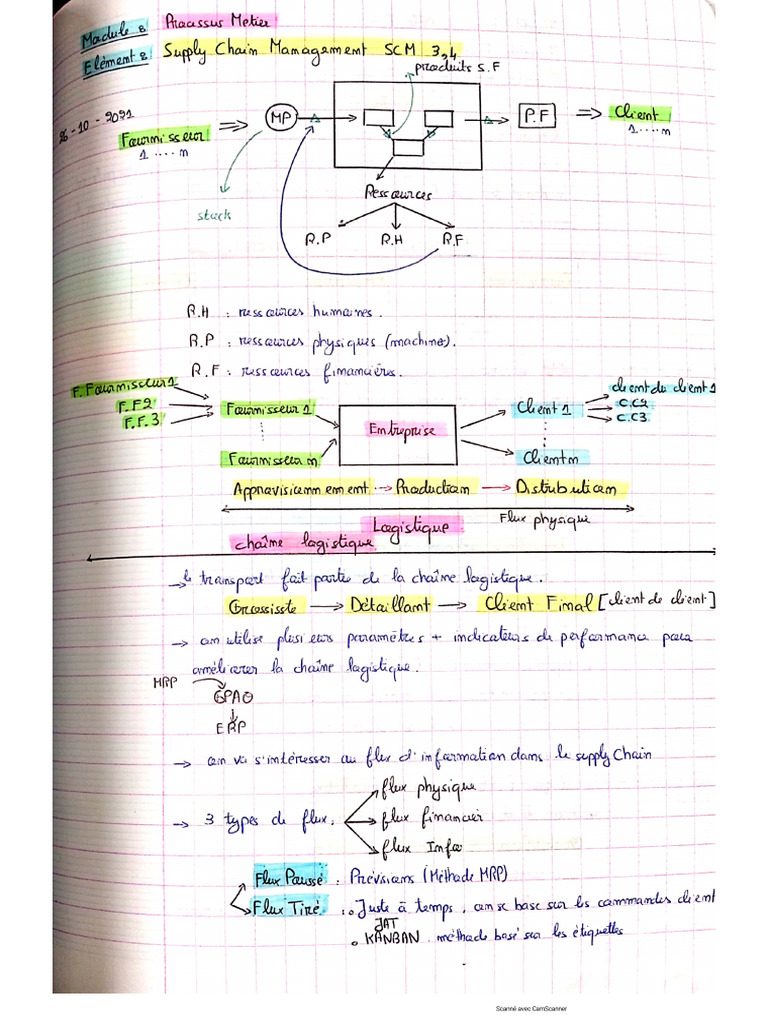 Module 8 Processus Metier
Elément 2 Supply Chain Management SCM 3,4
produits S.F
26-10-2021
Fournisseur ⇒ MP → P.F ⇒ Client
1 .... n
1 .... n
Ressources
stock
R.P R.H R.F
R.H : ressources humaines.
R.P : ressources physiques (machine).
R.F : ressources financières.
F. Fournisseur 1
F.F2
F.F.3
Fournisseur 1
Fournisseur n
Entreprise
Client 1
Client n
client du client 1
C.C2
C.C3
Approvisionnement → Production → Distribution
Logistique Flux physique
chaîne logistique
→ le transport fait partie de la chaîne logistique.
Grossiste → Détaillant → Client Final [client de client]
→ on utilise plusieurs paramètres + indicateurs de performance pour
améliorer la chaîne logistique.
MRP
GPAO
↓
ERP
→ on va s'intéresser au flux d'information dans le supply Chain
→ 3 types de flux.
flux physique
flux financier
flux Info
Flux Poussé : Prévisions (Méthode MRP)
Flux Tiré : Juste à temps, on se base sur les commandes client
JAT
KANBAN. méthode basé sur les étiquettes
Scanné avec CamScanner